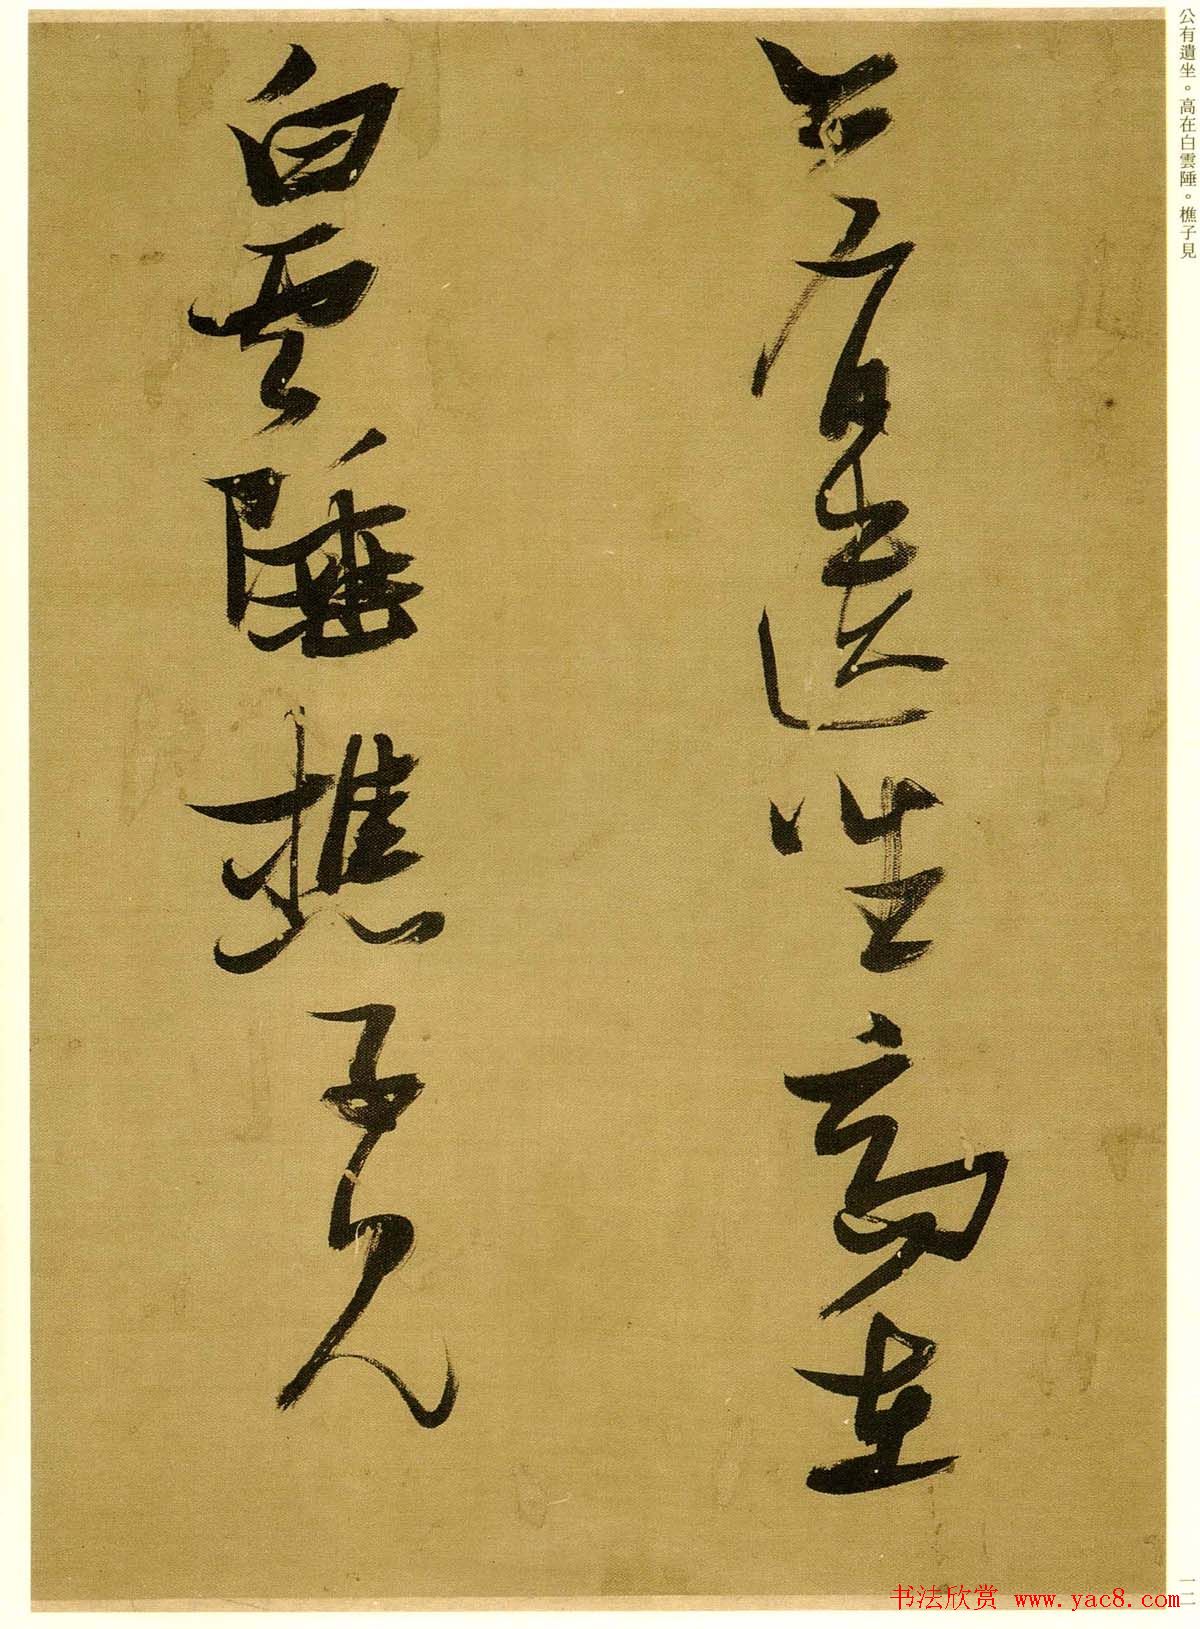 公有遺坐。高在白雲陲。樵子見
公有遺坐高在
白雲陲樵子見
一二
书法欣赏 www.yac8.com